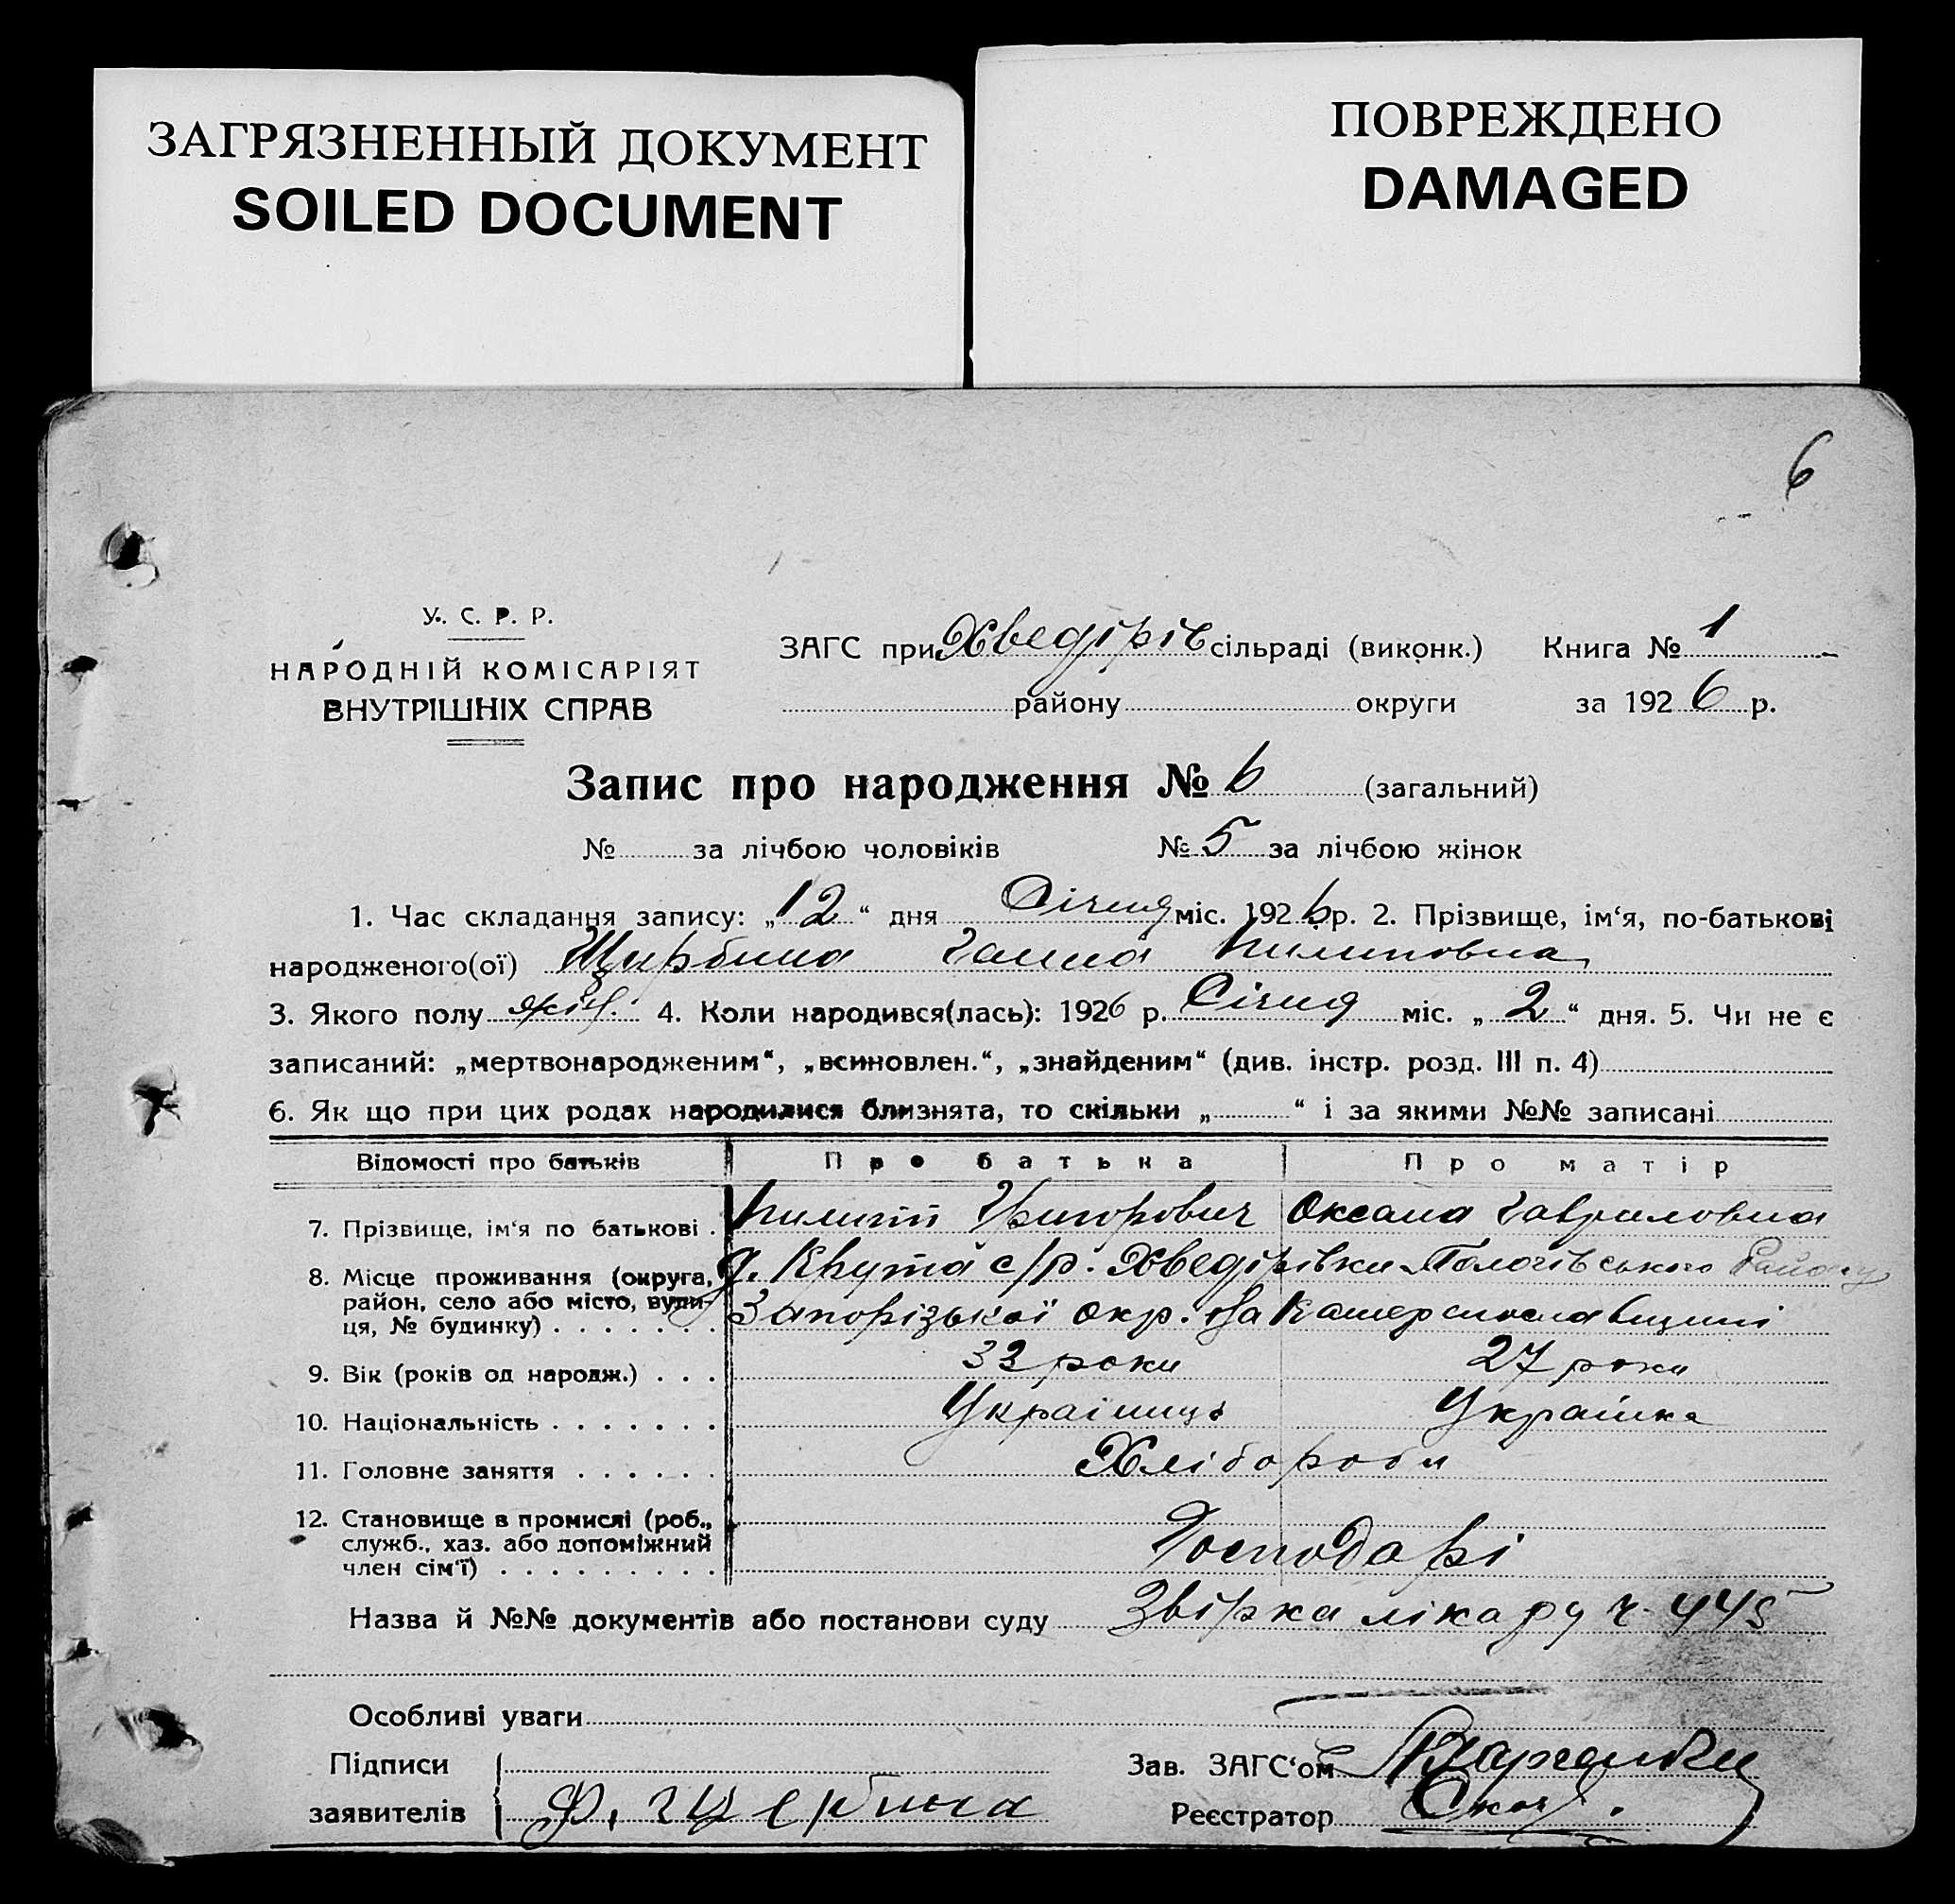 ЗАГРЯЗНЕННЫЙ ДОКУМЕНТ
SOILED DOCUMENT
ПОВРЕЖДЕНО
DAMAGED
6
У. С. Р. Р.
НАРОДНІЙ КОМІСАРІЯТ
ВНУТРІШНІХ СПРАВ
ЗАГС при Хведірів сільраді (виконк.) Книга № 1
району округи за 1926 р.
Запис про народження № 6 (загальний)
№ за лічбою чоловіків № 5 за лічбою жінок
1. Час складання запису: „12“ дня Січня міс. 1926 р. 2. Прізвище, ім‘я, по-батькові
народженого(ої) Щирбина Ганна Пилиповна
3. Якого полу жін. 4. Коли народився(лась): 1926 р. Січня міс. „2“ дня. 5. Чи не є
записаний: „мертвонародженим“, „всиновлен.“, „знайденим“ (див. інстр. розд. III п. 4)
6. Як що при цих родах народилися близнята, то скільки „ “ і за якими №№ записані
Відомості про батьків Про батька Про матір
7. Прізвище, ім‘я по батькові . Пилипп Григорович Оксана Гавриловна
8. Місце проживання (округа, с/р. Хведірівки Пологівського Району
район, село або місто, вули- Запорізької окр. на Катеринославщині
ця, № будинку) . . . . . . .
9. Вік (років од народж.) . . . 33 роки 27 роки
10. Національність . . . . . . . Українець Українка
11. Головне заняття . . . . . . Хлібороби
12. Становище в промислі (роб.,
служб., хаз. або допоміжний Господарі
член сім‘ї) . . . . . . . . .
Назва й №№ документів або постанови суду Звірка лікару ч. 445
Особливі уваги
Підписи Зав. ЗАГС‘ом
заявителів Ф. Щербина Реєстратор